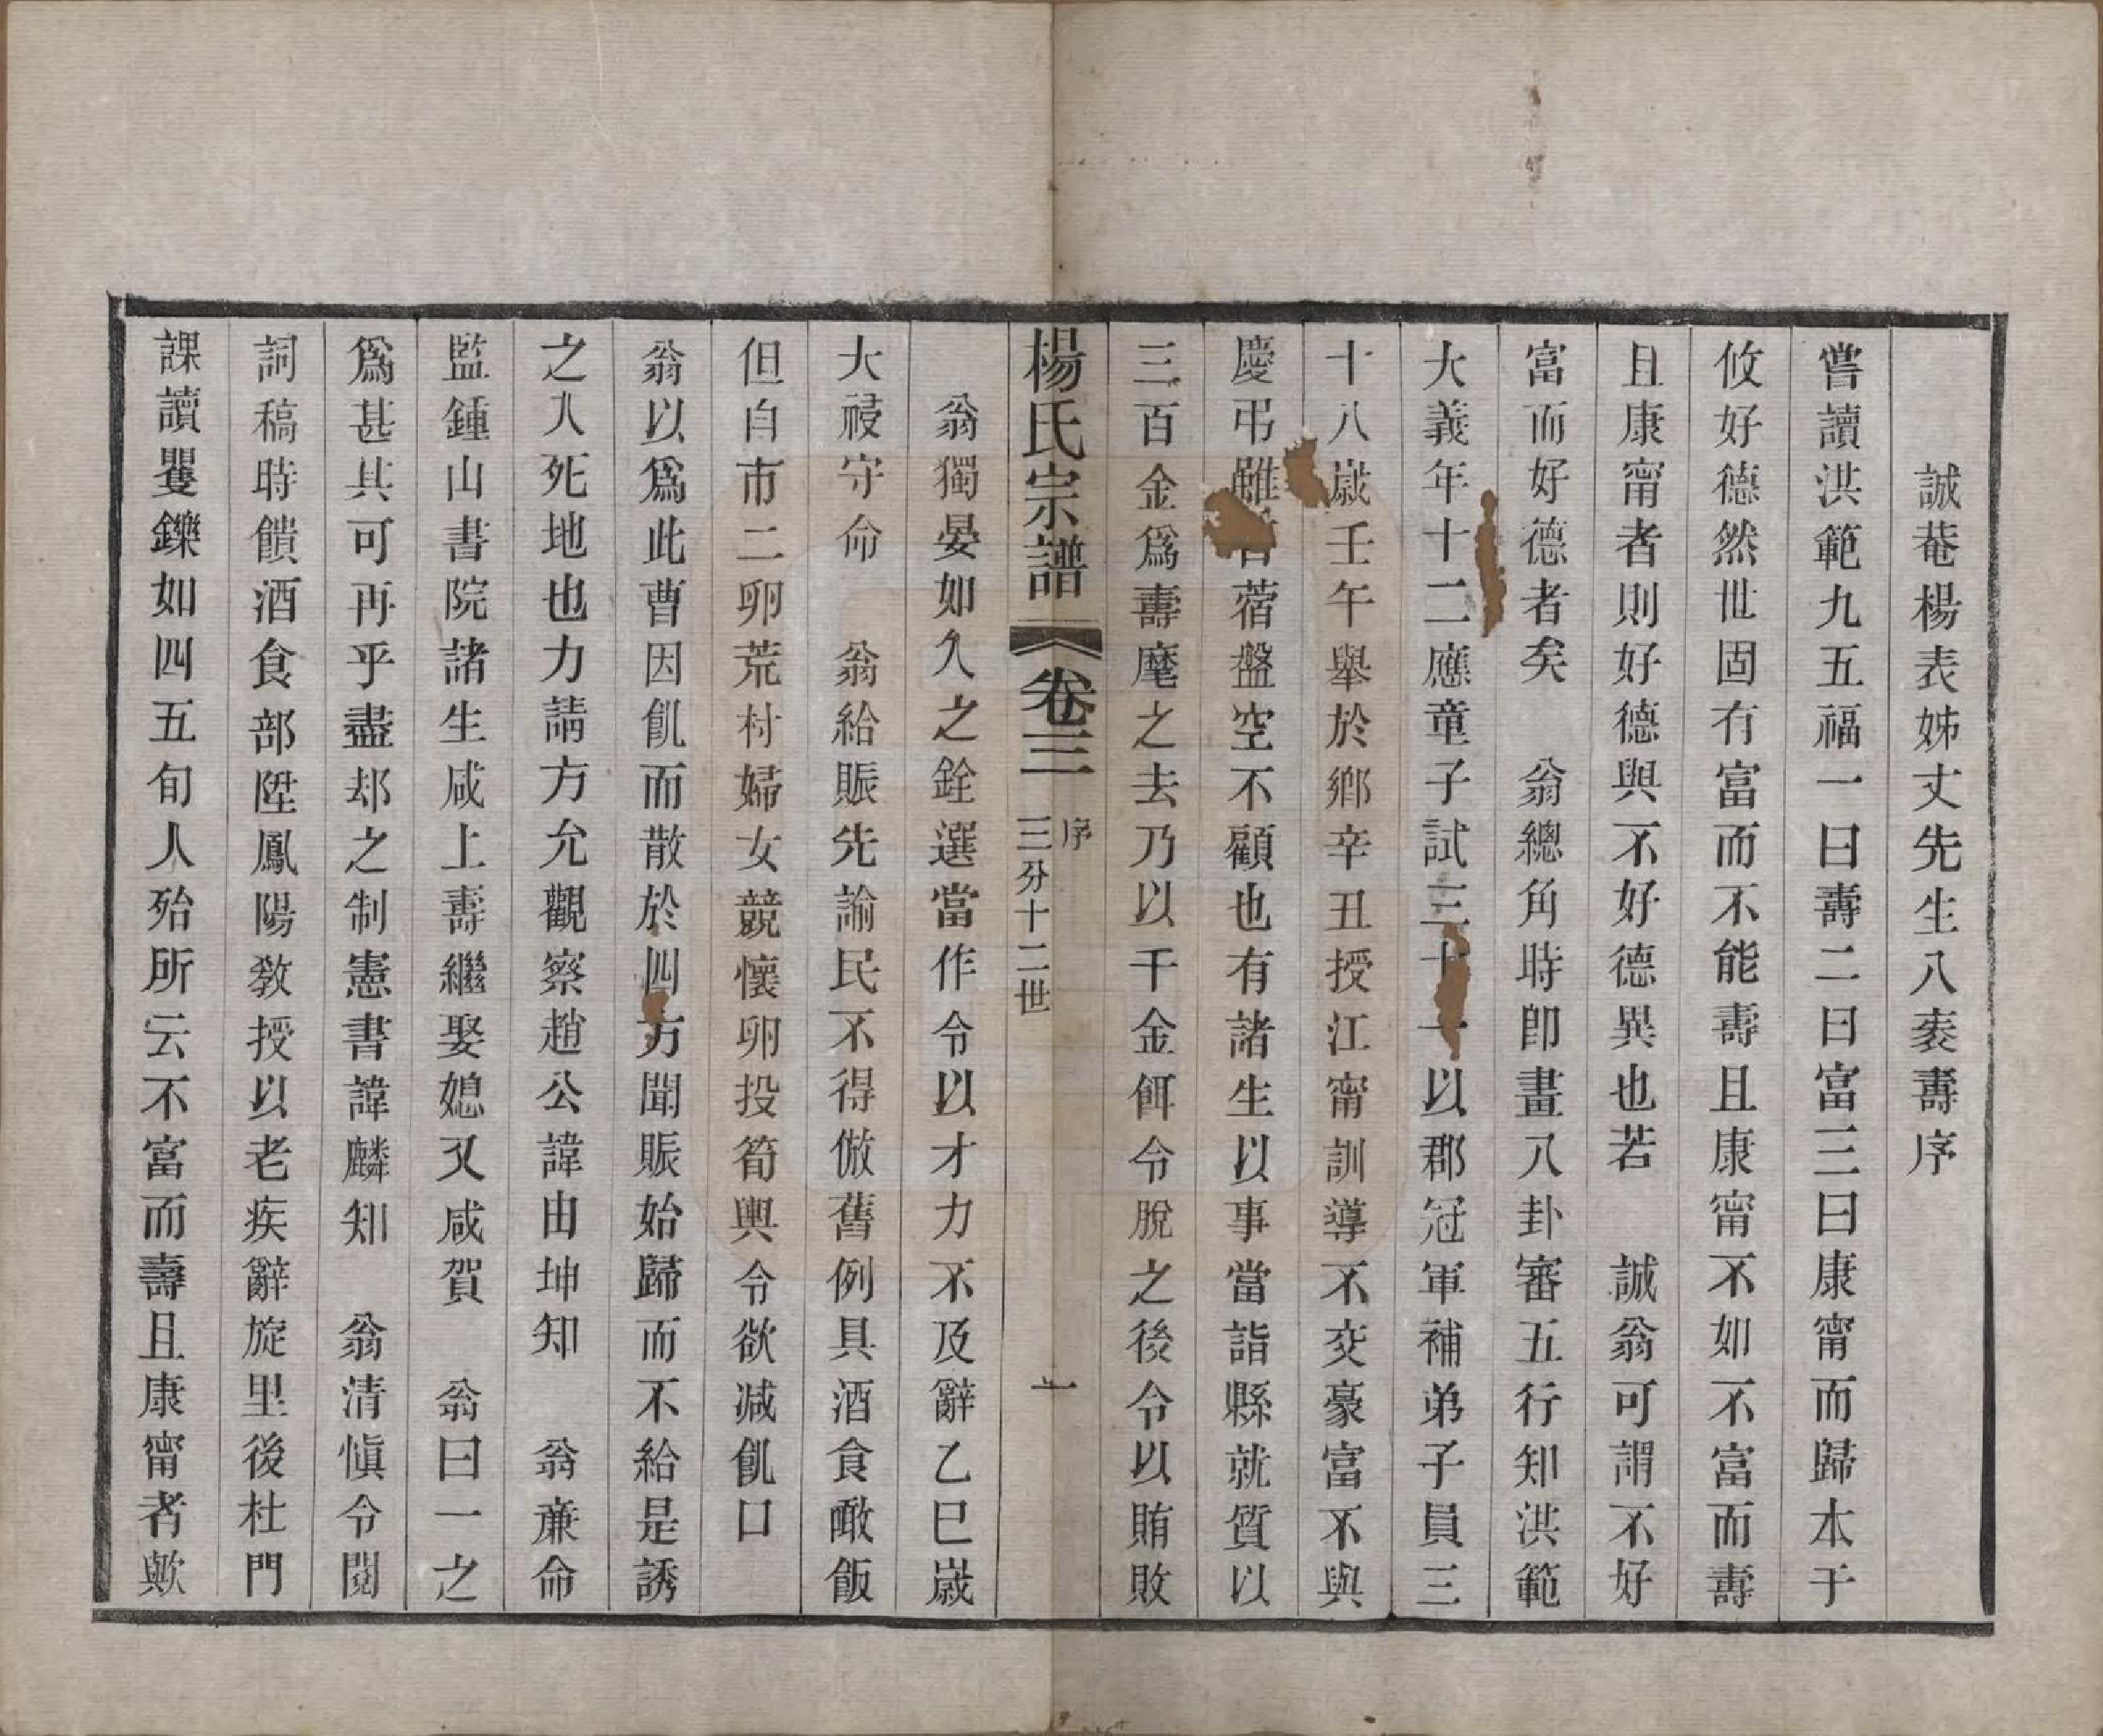 誠菴楊表姊丈先生八袠壽序
嘗讀洪範九五福一曰壽二曰富三曰康甯而歸本于
攸好德然世固有富而不能壽且康甯不如不富而壽
且康甯者則好德與不好德異也若 誠翁可謂不好
富而好德者矣 翁總角時卽畫八卦審五行知洪範
大義年十二應童子試三十一以郡冠軍補弟子員三
十八歲壬午舉於鄉辛丑授江甯訓導不交豪富不與
慶弔雖蓿盤空不顧也有諸生以事當詣縣就質以
三百金爲壽麾之去乃以千金餌令脫之後令以賄敗
楊氏宗譜 卷三 序 三分十二世 一
翁獨晏如久之銓選當作令以才力不及辭乙巳歲
大祲守命 翁給賑先諭民不得倣舊例具酒食噉飯
但自市二卵荒村婦女競懷卵投筍輿令欲减飢口
翁以爲此曹因飢而散於四方聞賑始歸而不給是誘
之入死地也力請方允觀察趙公諱由坤知 翁亷命
監鍾山書院諸生咸上壽繼娶媳又咸賀 翁曰一之
爲甚其可再乎盡却之制憲書諱麟知 翁清愼令閱
詞稿時饋酒食部陞鳳陽敎授以老疾辭旋里後杜門
課讀矍鑠如四五旬人殆所云不富而壽且康甯者歟